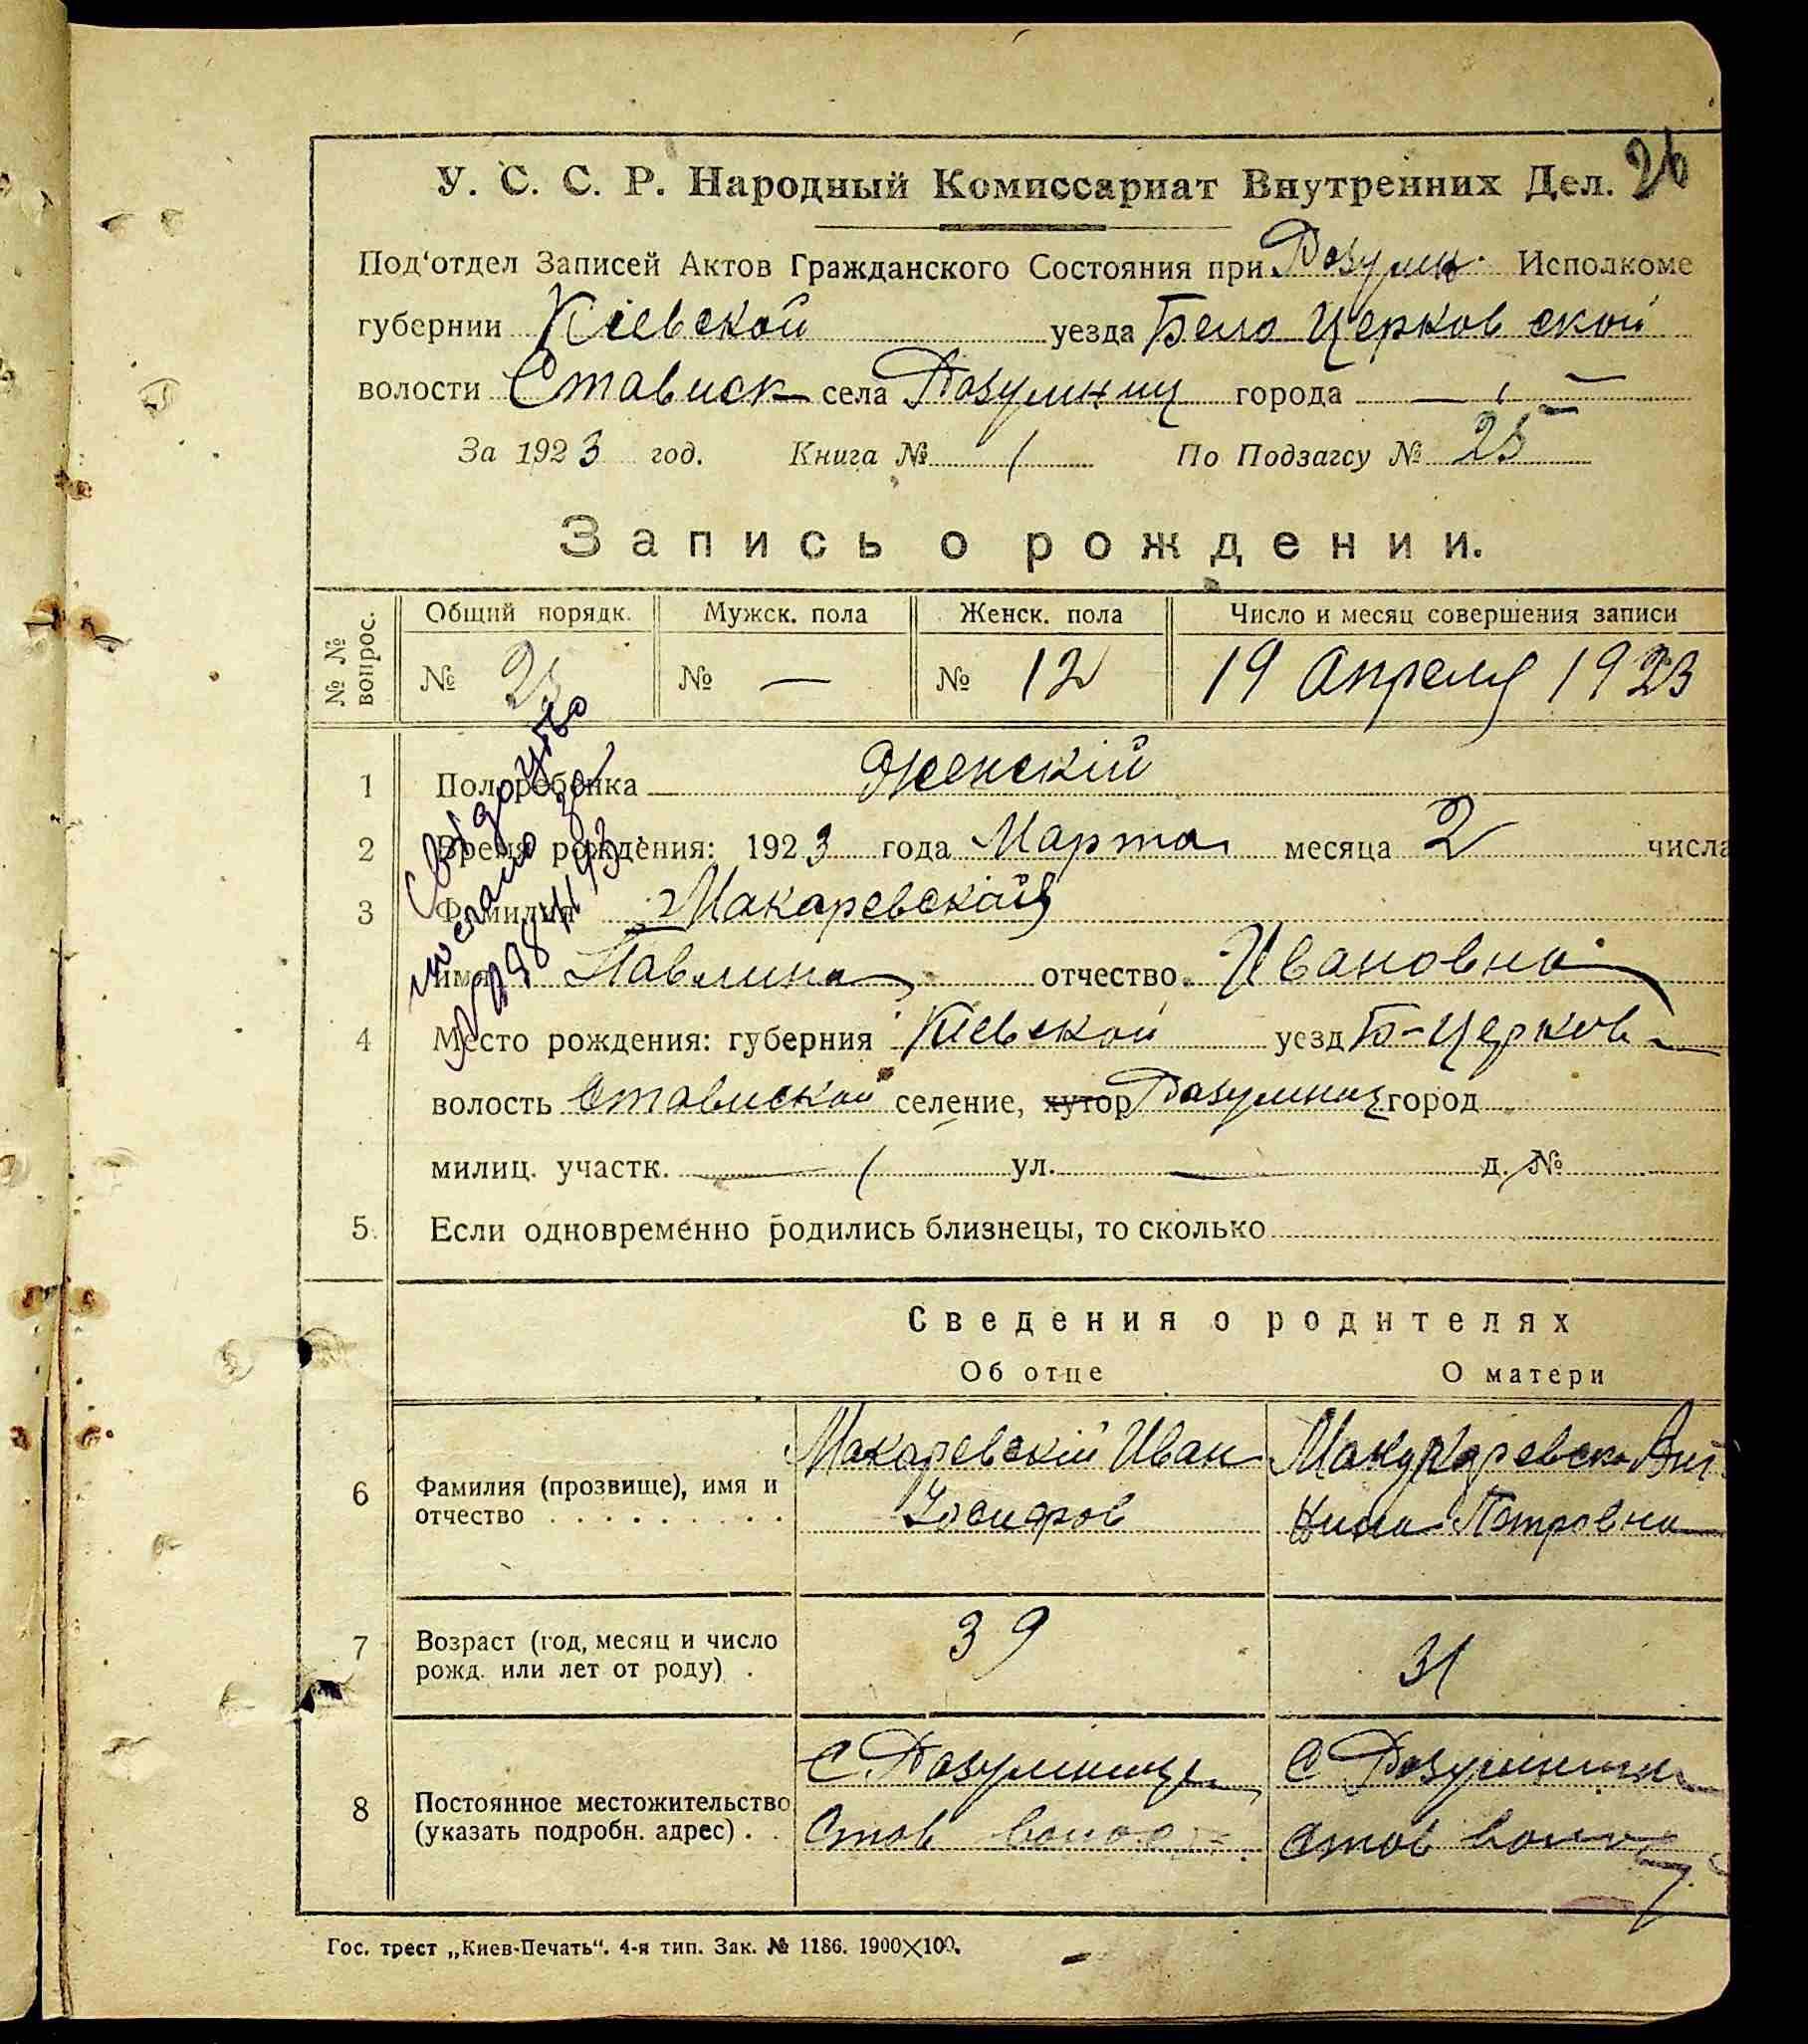 26
У. С. С. Р. Народный Комиссариат Внутренних Дел.
Под‘отдел Записей Актов Гражданского Состояния при Розумн. Исполкоме
губернии Кіевской уезда Бело Церковской
волости Стависк села Розумниц города —
За 1923 год. Книга № 1 По Подзагсу № 25
Запись о рождении.
№ № вопрос.
Общий порядк. Мужск. пола Женск. пола Число и месяц совершения записи
№ 25 № — № 12 19 Апреля 1923
1 Пол ребенка Женскій
2 Время рождения: 1923 года Марта месяца 2 числа
3 Фамилия Макаревская
имя Павлина отчество Ивановна
4 Место рождения: губерния Кіевской уезд Б-Церков
волость Ставиской селение, хутор Розумниц город
милиц. участк. — ул. — д. №
5. Если одновременно родились близнецы, то сколько
Свідоцтво
Сведения о родителях
Об отце О матери
6 Фамилия (прозвище), имя и отчество . . . . . . . . .
Макаревскій Иван
Иосифов
Петровна
7 Возраст (год, месяц и число рожд. или лет от роду) .
39 31
8 Постоянное местожительство (указать подробн. адрес) . .
С. Розумницы
Став волос
С Розумниц
Став воло
Гос. трест „Киев-Печать“. 4-я тип. Зак. № 1186. 1900×100.